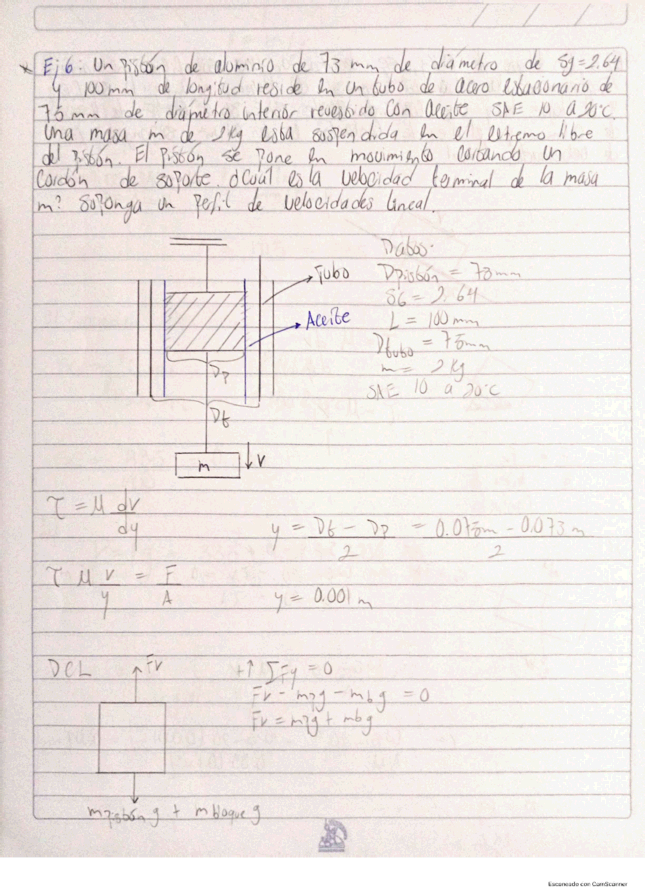 * Ej 6: Un pistón de aluminio de 73 mm de diámetro de Sg = 2.64
y 100 mm de longitud reside en un tubo de acero estacionario de
75 mm de diámetro interior revestido con aceite SAE 10 a 20°C.
Una masa m de 2 Kg esta suspendida en el extremo libre
del pistón. El pistón se pone en movimiento cortando un
cordón de soporte. ¿Cuál es la velocidad terminal de la masa
m? Suponga un perfil de velocidades lineal.
Datos:
Dpistón = 73 mm
SG = 2.64
L = 100 mm
Dtubo = 75 mm
m = 2 Kg
SAE 10 a 20°C
Tubo
Aceite
Dp
Dt
m
V
τ = μ dv/dy
y = Dt - Dp / 2 = 0.075m - 0.073 m / 2
τ μ v/y = F/A
y = 0.001 m
DCL
Fv
+↑ ΣFy = 0
Fv - mpg - mbg = 0
Fv = mpg + mbg
mpistón g + mbloque g
Escaneado con CamScanner